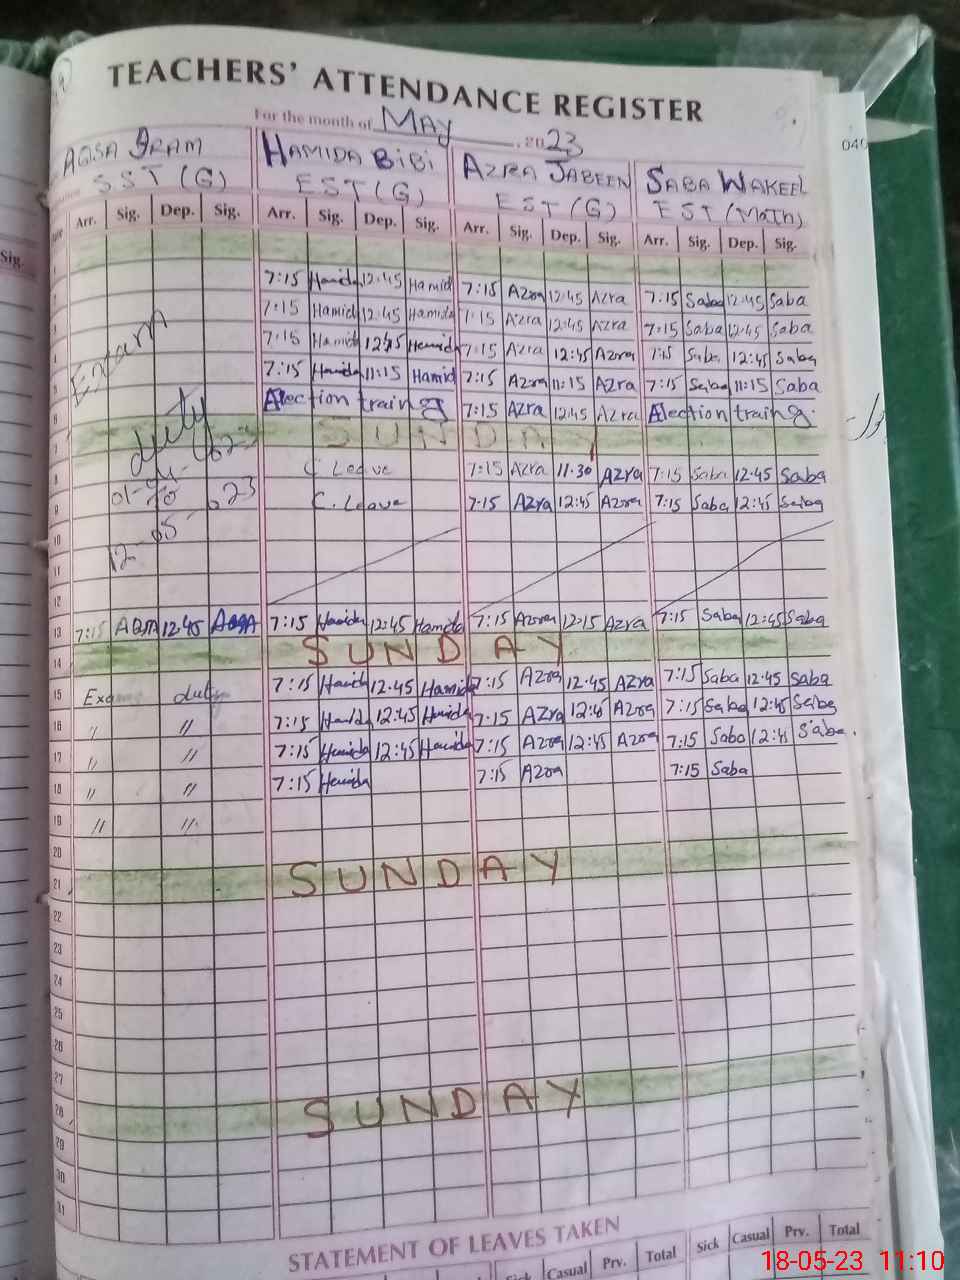 TEACHERS' ATTENDANCE REGISTER
For the month of MAY 2023
AQSA IRAM HAMIDA BIBI AZRA JABEEN SABA WAKEEL
SST (G) EST (G) EST (G) EST (Math)
Arr. Sig. Dep. Sig. Arr. Sig. Dep. Sig. Arr. Sig. Dep. Sig. Arr. Sig. Dep. Sig.
1
2 7:15 Hamida 12:45 Hamid 7:15 Azra 12:45 Azra 7:15 Saba 12:45 Saba
3 7:15 Hamida 12:45 Hamida 7:15 Azra 12:45 Azra 7:15 Saba 12:45 Saba
4 Exam 7:15 Hamida 12:45 Hamida 7:15 Azra 12:45 Azra 7:15 Saba 12:45 Saba
5 7:15 Hamida 11:15 Hamid 7:15 Azra 11:15 Azra 7:15 Saba 11:15 Saba
6 duty Alection training 7:15 Azra 12:45 Azra Alection training.
7 SUNDAY
8 C Leave 7:15 Azra 11:30 Azra 7:15 Saba 12:45 Saba
9 to C. Leave 7:15 Azra 12:45 Azra 7:15 Saba 12:45 Saba
10 12-05-23
11
12
13 7:15 AQSA 12:45 AQSA 7:15 Hamida 12:45 Hamida 7:15 Azra 12:15 Azra 7:15 Saba 12:45 Saba
14 SUNDAY
15 Exam duty 7:15 Hamida 12:45 Hamida 7:15 Azra 12:45 Azra 7:15 Saba 12:45 Saba
16 " " 7:15 Hamida 12:45 Hamida 7:15 Azra 12:45 Azra 7:15 Saba 12:45 Saba
17 " " 7:15 Hamida 12:45 Hamida 7:15 Azra 12:45 Azra 7:15 Saba 12:45 Saba.
18 " " 7:15 Hamida 7:15 Azra 7:15 Saba
19 " "
20
21 SUNDAY
22
23
24
25
26
27
28 SUNDAY
29
30
31
STATEMENT OF LEAVES TAKEN
Sick Casual Prv. Total Sick Casual Prv. Total
Sig.
040
18-05-23 11:10